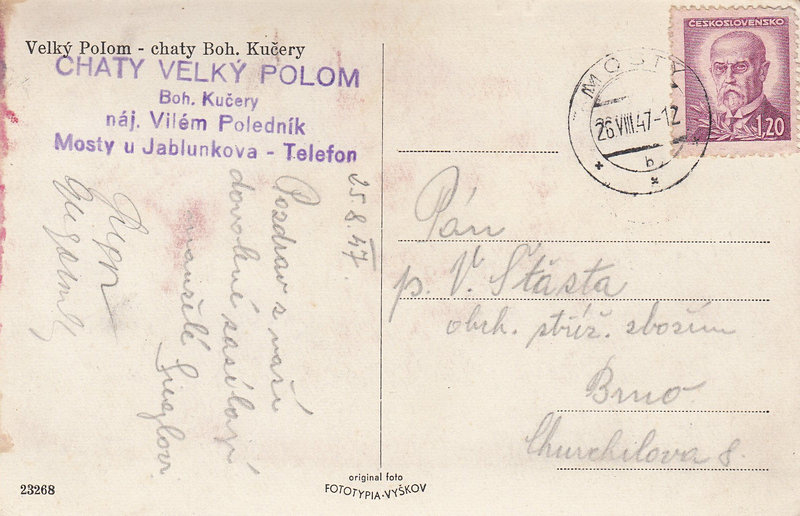 Velký Polom - chaty Boh. Kučery
CHATY VELKÝ POLOM
Boh. Kučery
náj. Vilém Poledník
Mosty u Jablunkova - Telefon
ČESKOSLOVENSKO
1,20
MOSTY
26.VIII.47-12
b
25.8.47.
Pozdrav s naší
dovolené zasílají
manželé
Pán
p. V. Šťásta
obch. střiž. zbožím
Brno
Churchilova 8.
23268
original foto
FOTOTYPIA-VYŠKOV